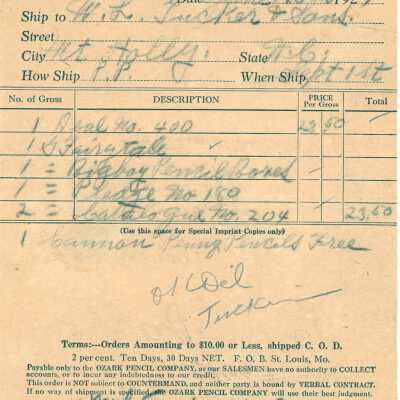 Date 192
Ship to W. L. Tucker & Sons.
Street
City Mt. Holly. State N.C.
How Ship P.P. When Ship Sept 1st
No. of Gross DESCRIPTION PRICE Per Gross Total
1 Deal No. 400 23.50
1 G Fairytale
1 = Bigboy Pencil Boxes
1 = No 180
2 = Catalogue No. 204 23,50
(Use this space for Special Imprint Copies only)
1 Cannon Penny Pencils Free
Tucker
Terms:---Orders Amounting to $10.00 or Less, shipped C. O. D.
2 per cent. Ten Days, 30 Days NET. F. O. B. St. Louis, Mo.
Payable only to the OZARK PENCIL COMPANY, as our SALESMEN have no authority to COLLECT
accounts, or to incur any indebtedness to our credit.
This order is NOT subject to COUNTERMAND, and neither party is bound by VERBAL CONTRACT.
If no way of shipment is specified the OZARK PENCIL COMPANY will use their best judgment.